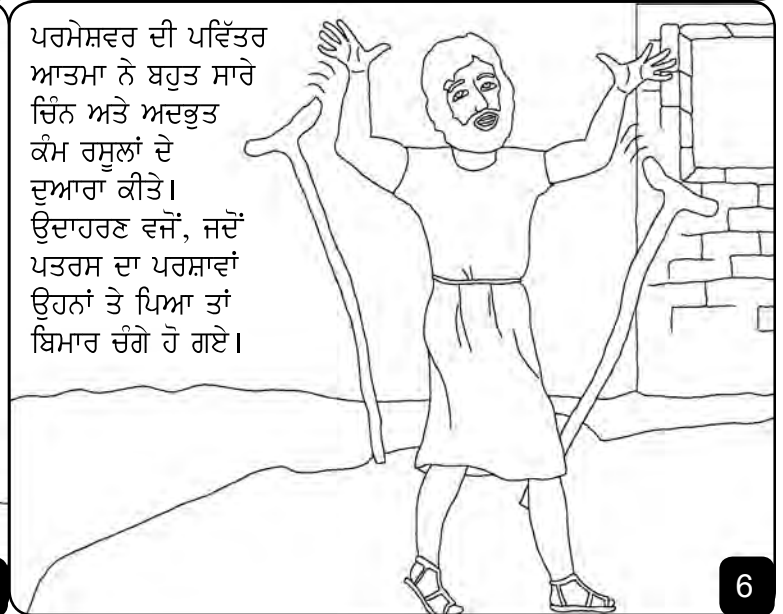 ਪਰਮੇਸ਼ਵਰ ਦੀ ਪਵਿੱਤਰ
ਆਤਮਾ ਨੇ ਬਹੁਤ ਸਾਰੇ
ਚਿੰਨ ਅਤੇ ਅਦਭੁਤ
ਕੰਮ ਰਸੂਲਾਂ ਦੇ
ਦੁਆਰਾ ਕੀਤੇ।
ਉਦਾਹਰਣ ਵਜੋਂ, ਜਦੋਂ
ਪਤਰਸ ਦਾ ਪਰਸ਼ਾਵਾਂ
ਉਹਨਾਂ ਤੇ ਪਿਆ ਤਾਂ
ਬਿਮਾਰ ਚੰਗੇ ਹੋ ਗਏ।
6